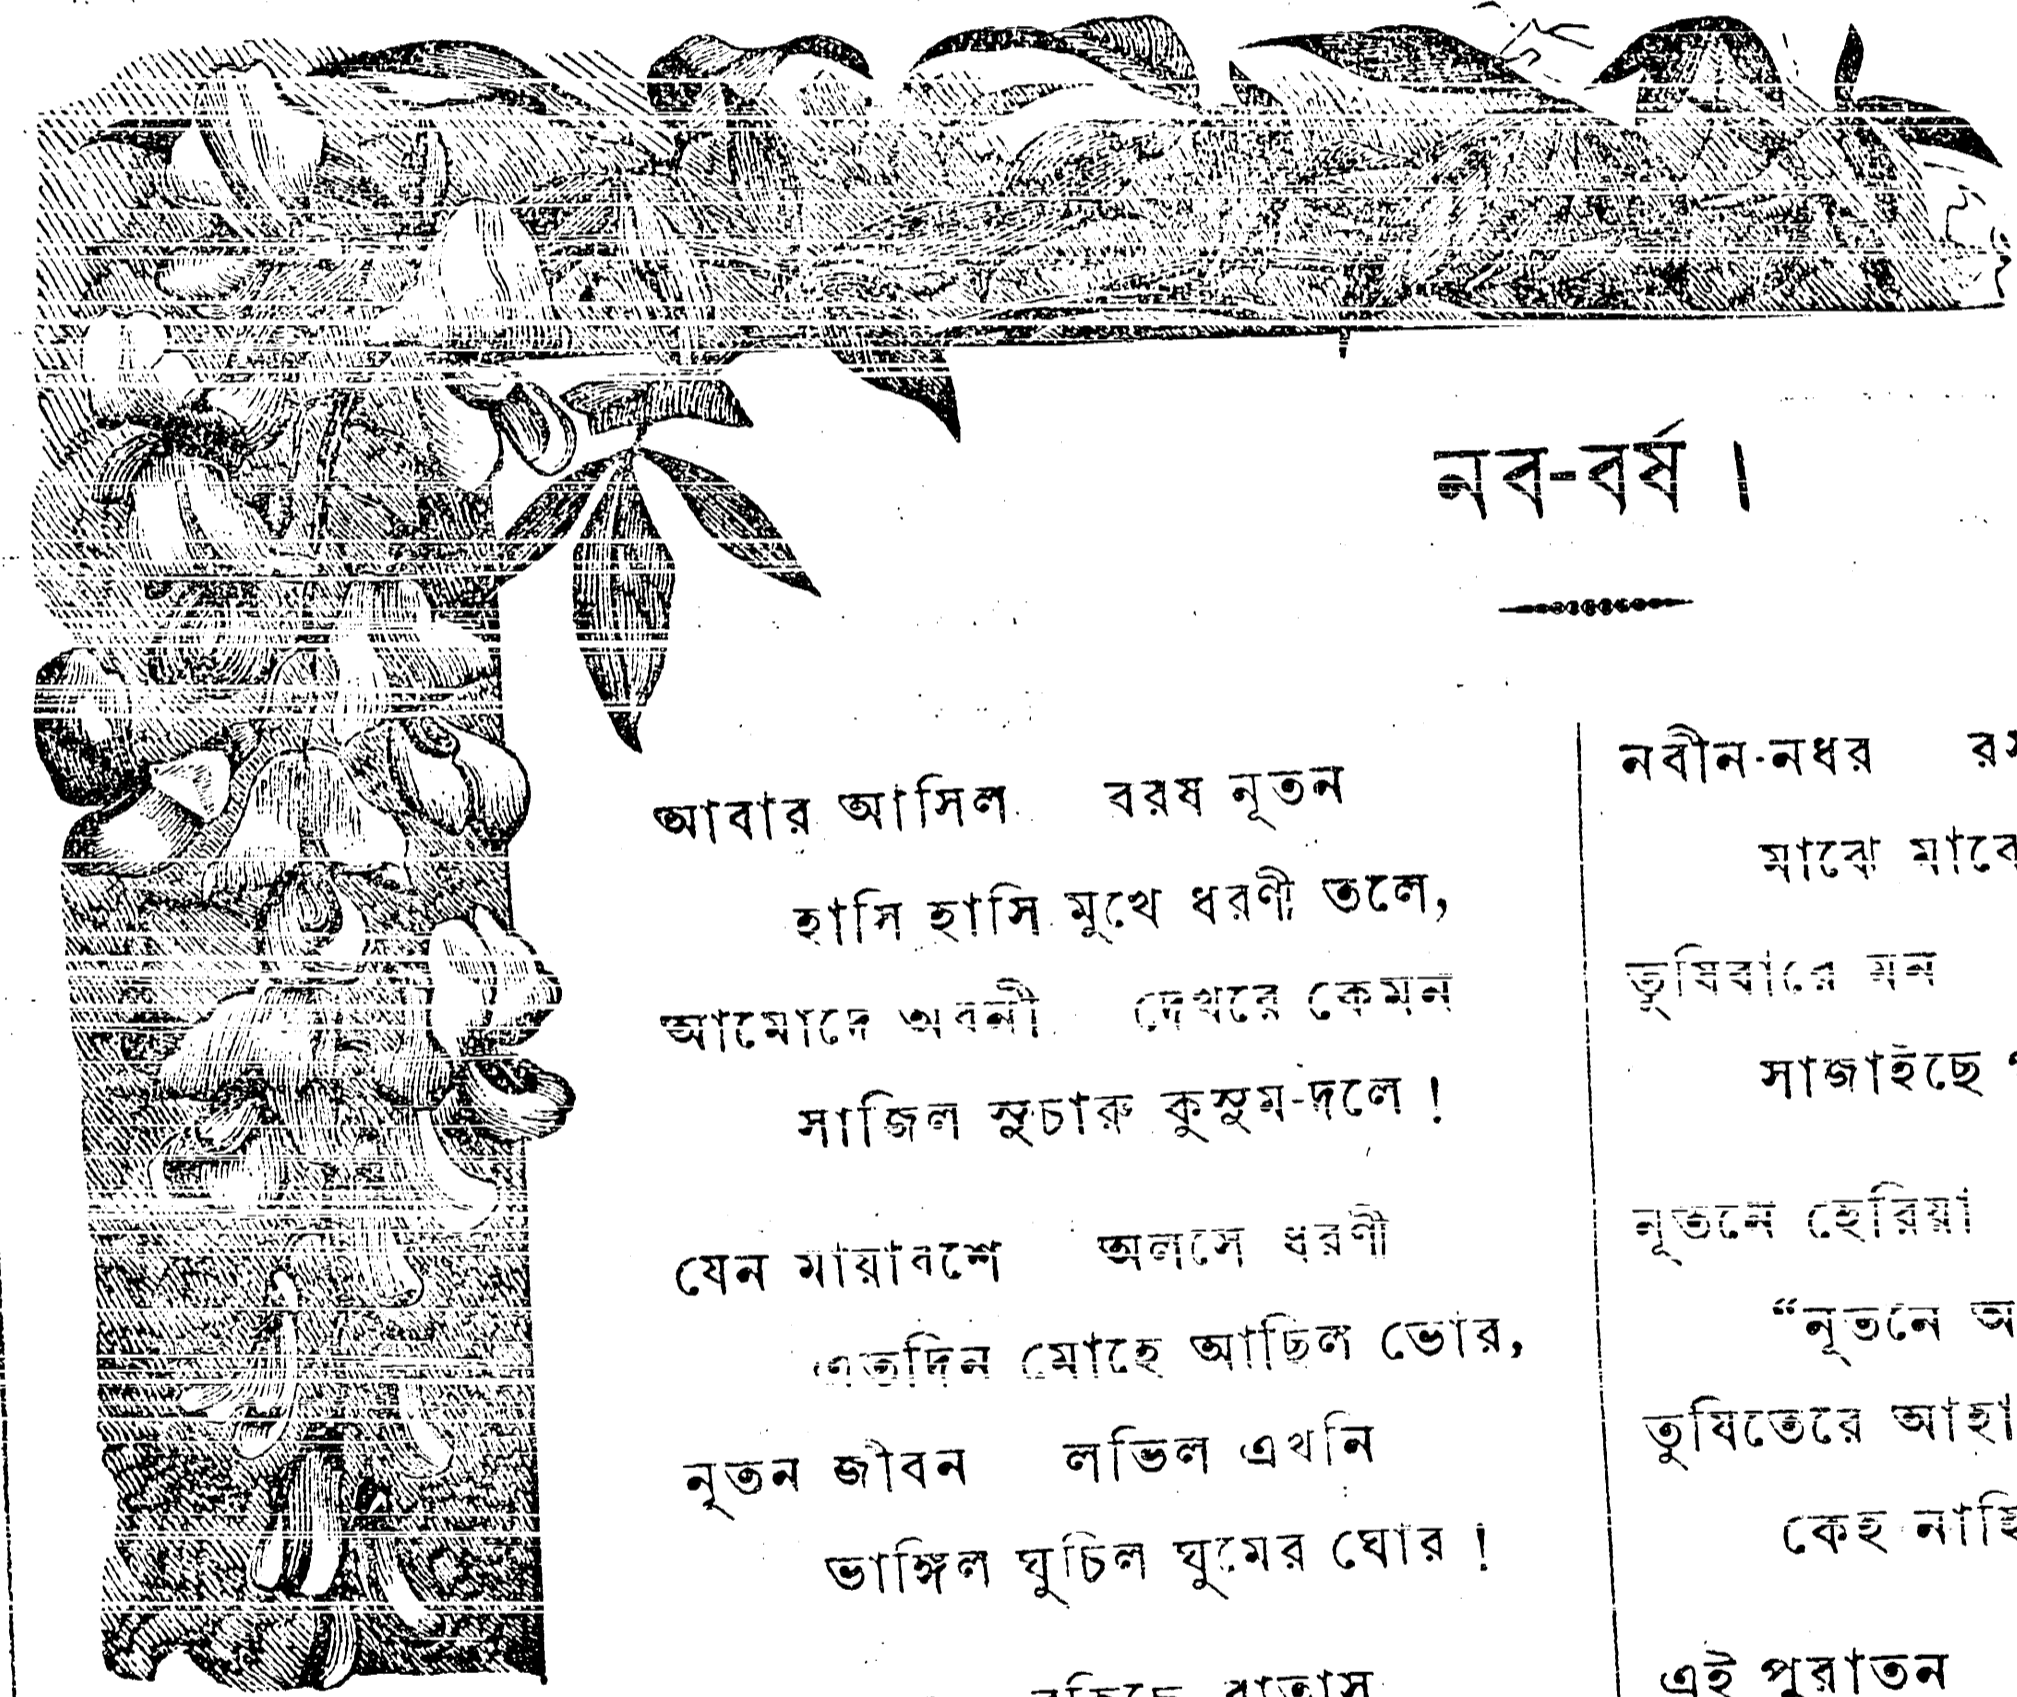 নব-বর্ষ ।
আবার আসিল বরষ নূতন
হাসি হাসি মুখে ধরণী তলে,
আমোদে অবনী দেখরে কেমন
সাজিল সুচারু কুসুম-দলে !
যেন মায়াবশে অলসে ধরণী
এতদিন মোহে আছিল ভোর,
নূতন জীবন লভিল এখনি
ভাঙ্গিল ঘুচিল ঘুমের ঘোর !
বহিছে বাতাস
নবীন-নধর
মাঝে মাঝে
তুষিবারে মন
সাজাইছে
নূতনে হেরিয়া
“নূতনে
তুষিতেরে আহা
কেহ
এই পুরাতন